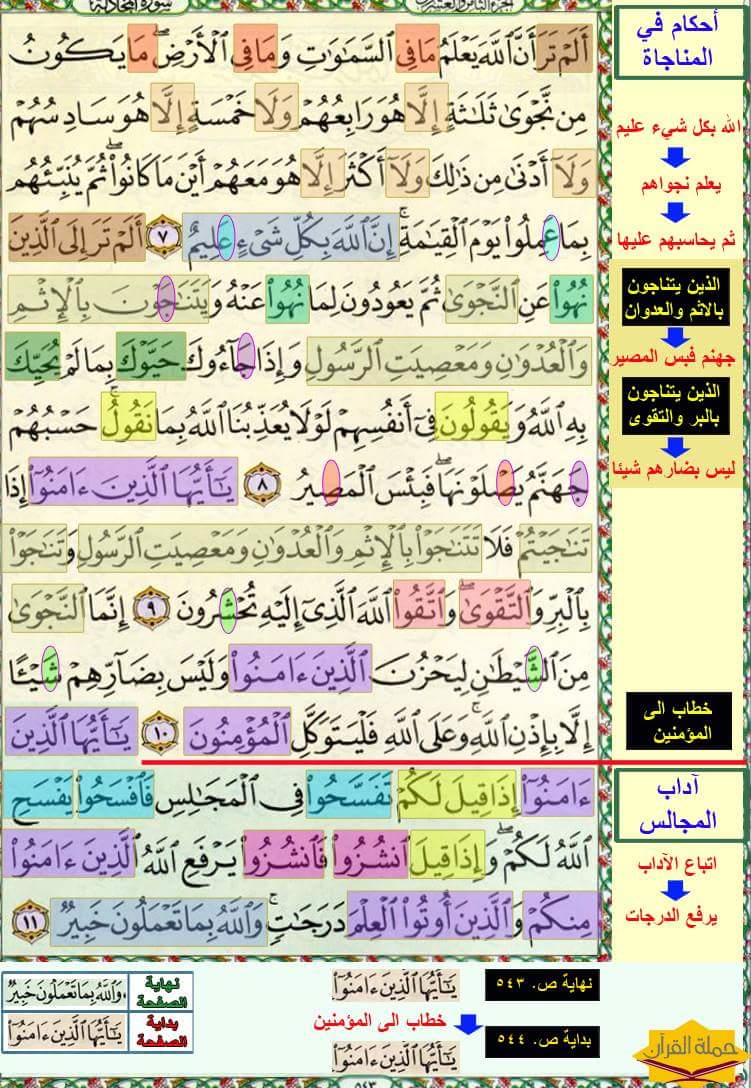 سورة المجادلة
الجزء الثامن والعشرون
أَلَمْ تَرَ أَنَّ ٱللَّهَ يَعْلَمُ مَا فِى ٱلسَّمَٰوَٰتِ وَمَا فِى ٱلْأَرْضِ ۖ مَا يَكُونُ
مِن نَّجْوَىٰ ثَلَٰثَةٍ إِلَّا هُوَ رَابِعُهُمْ وَلَا خَمْسَةٍ إِلَّا هُوَ سَادِسُهُمْ
وَلَآ أَدْنَىٰ مِن ذَٰلِكَ وَلَآ أَكْثَرَ إِلَّا هُوَ مَعَهُمْ أَيْنَ مَا كَانُوا۟ ۖ ثُمَّ يُنَبِّئُهُم
بِمَا عَمِلُوا۟ يَوْمَ ٱلْقِيَٰمَةِ ۚ إِنَّ ٱللَّهَ بِكُلِّ شَىْءٍ عَلِيمٌ ٧ أَلَمْ تَرَ إِلَى ٱلَّذِينَ
نُهُوا۟ عَنِ ٱلنَّجْوَىٰ ثُمَّ يَعُودُونَ لِمَا نُهُوا۟ عَنْهُ وَيَتَنَٰجَوْنَ بِٱلْإِثْمِ
وَٱلْعُدْوَٰنِ وَمَعْصِيَتِ ٱلرَّسُولِ وَإِذَا جَآءُوكَ حَيَّوْكَ بِمَا لَمْ يُحَيِّكَ
بِهِ ٱللَّهُ وَيَقُولُونَ فِىٓ أَنفُسِهِمْ لَوْلَا يُعَذِّبُنَا ٱللَّهُ بِمَا نَقُولُ ۚ حَسْبُهُمْ
جَهَنَّمُ يَصْلَوْنَهَا ۖ فَبِئْسَ ٱلْمَصِيرُ ٨ يَٰٓأَيُّهَا ٱلَّذِينَ ءَامَنُوٓا۟ إِذَا
تَنَٰجَيْتُمْ فَلَا تَتَنَٰجَوْا۟ بِٱلْإِثْمِ وَٱلْعُدْوَٰنِ وَمَعْصِيَتِ ٱلرَّسُولِ وَتَنَٰجَوْا۟
بِٱلْبِرِّ وَٱلتَّقْوَىٰ ۖ وَٱتَّقُوا۟ ٱللَّهَ ٱلَّذِىٓ إِلَيْهِ تُحْشَرُونَ ٩ إِنَّمَا ٱلنَّجْوَىٰ
مِنَ ٱلشَّيْطَٰنِ لِيَحْزُنَ ٱلَّذِينَ ءَامَنُوا۟ وَلَيْسَ بِضَآرِّهِمْ شَيْـًٔا
إِلَّا بِإِذْنِ ٱللَّهِ ۚ وَعَلَى ٱللَّهِ فَلْيَتَوَكَّلِ ٱلْمُؤْمِنُونَ ١٠ يَٰٓأَيُّهَا ٱلَّذِينَ
ءَامَنُوٓا۟ إِذَا قِيلَ لَكُمْ تَفَسَّحُوا۟ فِى ٱلْمَجَٰلِسِ فَٱفْسَحُوا۟ يَفْسَحِ
ٱللَّهُ لَكُمْ ۖ وَإِذَا قِيلَ ٱنشُزُوا۟ فَٱنشُزُوا۟ يَرْفَعِ ٱللَّهُ ٱلَّذِينَ ءَامَنُوا۟
مِنكُمْ وَٱلَّذِينَ أُوتُوا۟ ٱلْعِلْمَ دَرَجَٰتٍ ۚ وَٱللَّهُ بِمَا تَعْمَلُونَ خَبِيرٌ ١١
أحكام في
المناجاة
الله بكل شيء عليم
يعلم نجواهم
ثم يحاسبهم عليها
الذين يتناجون
بالاثم والعدوان
جهنم فبس المصير
الذين يتناجون
بالبر والتقوى
ليس بضارهم شيئا
خطاب الى
المؤمنين
آداب
المجالس
اتباع الآداب
يرفع الدرجات
نهاية ص. ٥٤٣
يَٰٓأَيُّهَا ٱلَّذِينَ ءَامَنُوٓا۟
خطاب الى المؤمنين
بداية ص. ٥٤٤
يَٰٓأَيُّهَا ٱلَّذِينَ ءَامَنُوٓا۟
نهاية
الصفحة
وَٱللَّهُ بِمَا تَعْمَلُونَ خَبِيرٌ
بداية
الصفحة
يَٰٓأَيُّهَا ٱلَّذِينَ ءَامَنُوٓا۟
حملة القرآن
٥٤٣